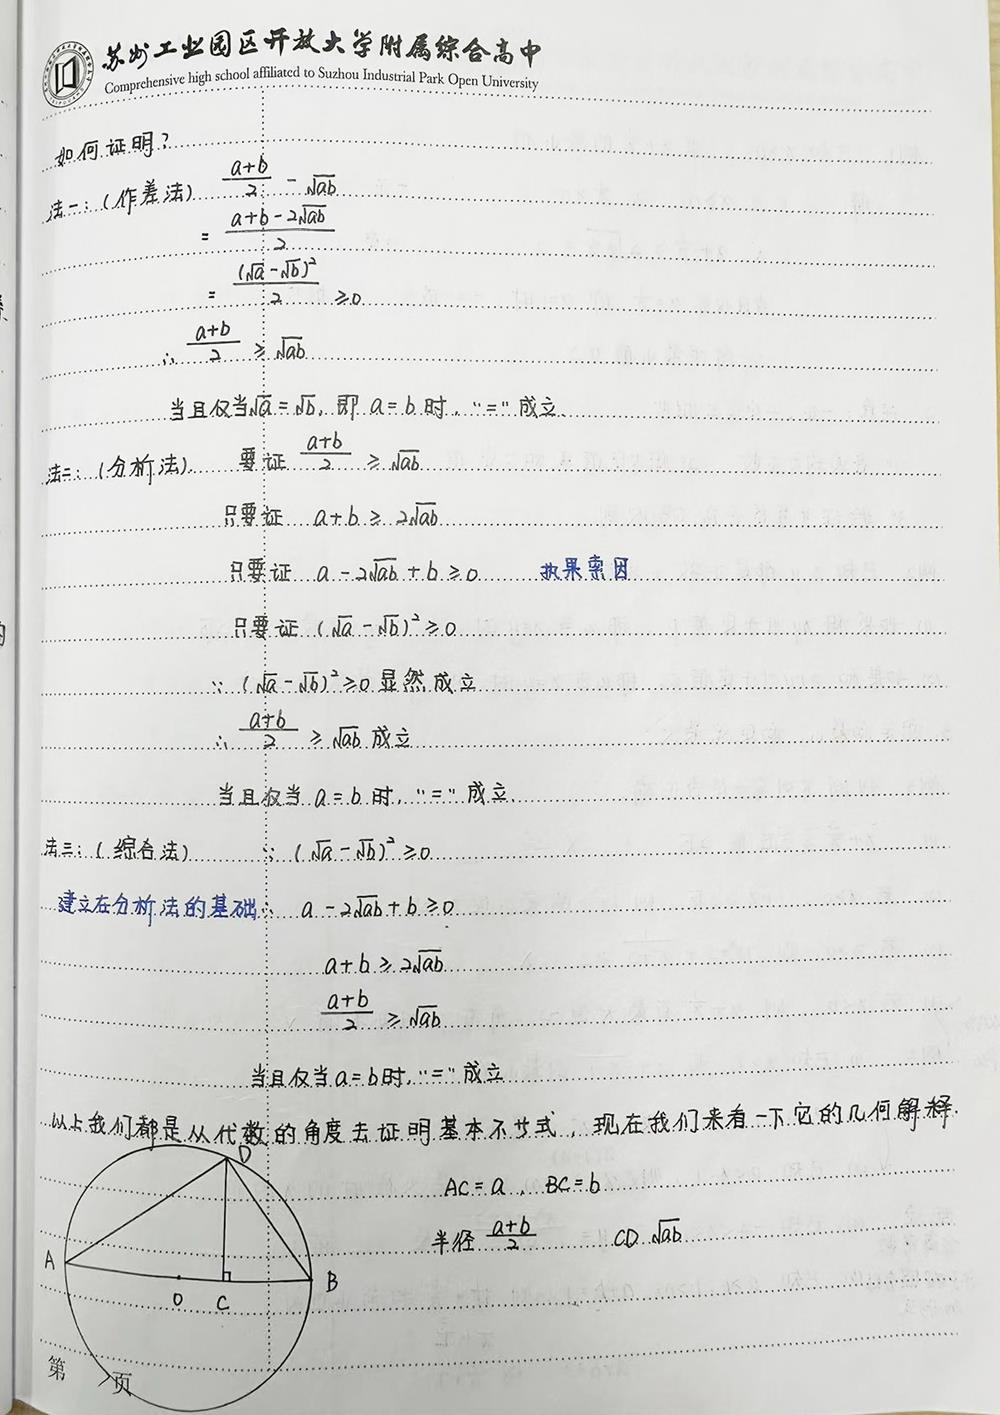 苏州工业园区开放大学附属综合高中
Comprehensive high school affiliated to Suzhou Industrial Park Open University
如何证明?
法一:(作差法) (a+b)/2 - √ab
= (a+b-2√ab)/2
= (√a-√b)²/2 ≥0
∴ (a+b)/2 ≥ √ab
当且仅当√a=√b, 即 a=b时, "="成立.
法二:(分析法). 要证 (a+b)/2 ≥ √ab
只要证 a+b ≥ 2√ab
只要证 a-2√ab+b≥0 执果索因
只要证 (√a-√b)²≥0
∵ (√a-√b)²≥0 显然成立
∴ (a+b)/2 ≥ √ab 成立
当且仅当 a=b 时, "="成立.
法三:(综合法) ∵ (√a-√b)²≥0
建立在分析法的基础 ∴ a-2√ab+b≥0
a+b≥2√ab
(a+b)/2 ≥ √ab
当且仅当a=b时, "="成立
以上我们都是从代数的角度去证明基本不等式, 现在我们来看一下它的几何解释.
D
AC=a, BC=b
半径 (a+b)/2 CD √ab
A
B
O C
第 页